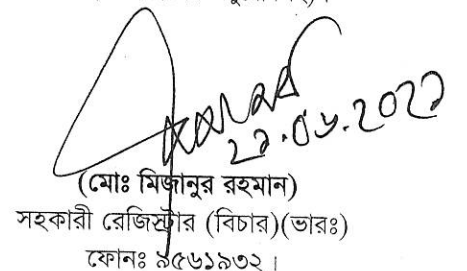 ২১.০৬.২০২১
(মোঃ মিজানুর রহমান)
সহকারী রেজিস্ট্রার (বিচার)(ভারঃ)
ফোনঃ ৯৫৬১৯৩২।